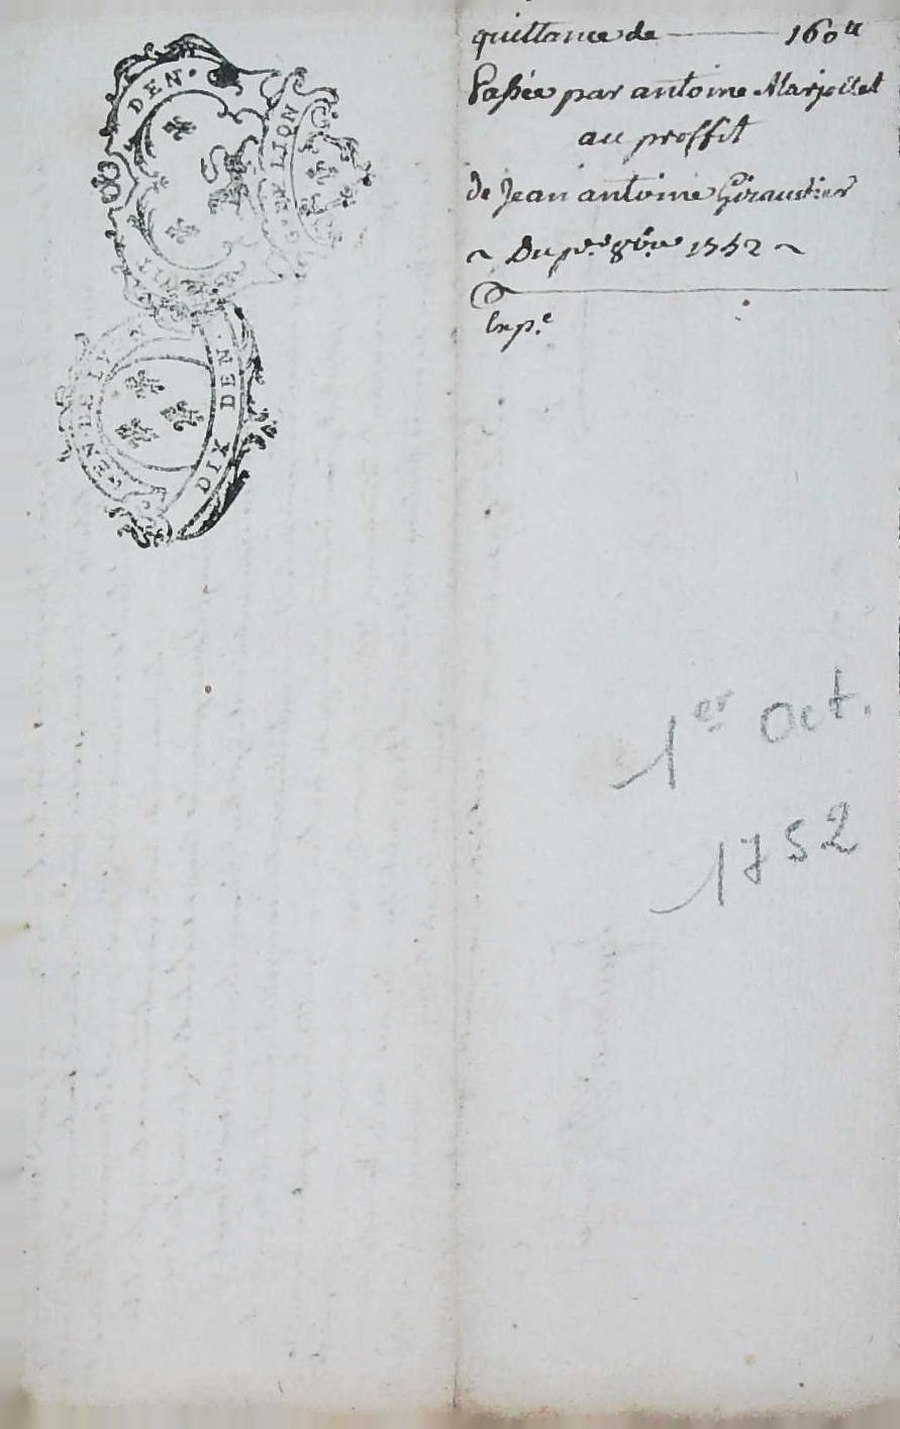 DEN.
GEN DE LION
GEN. DE LY
DIX DEN.
quittance de — 160ᵗᵗ
Passée par antoine Marjollet
au proffit
de Jean antoine Giraudier
~ Du pʳᵉ 8bre 1752 ~
Exp.ᵉ
1er Oct.
1752